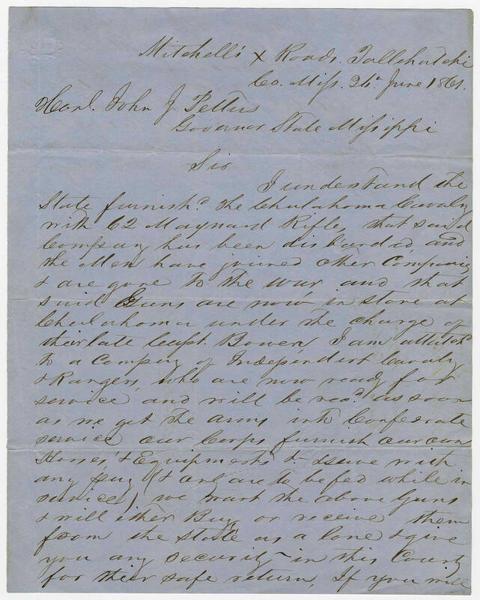 Mitchell's X Roads. Tallahatchi
Co. Miss. 26th June 1861.
Honl. John J Pettus
Governor State Missippi
Sir
I understand the
State furnishd. the Chulahoma Cavalry
with 62 Maynard Rifles, that said
Company has been disbanded, and
the Men have joined other Companies
& are gone to the War and that
said Guns are now in store at
Chulahoma under the charge of
their late Capt Bowen. I am attached
to a Company of Independent Cavalry
& Rangers, who are now ready for
service and will be recd. as soon
as we get the arms into Confederate
service our Corps furnish our own
Horses & Equipments & serve with
any pay (& only are to be fed while in
service) we want the above Guns
& will either Buy or receive them
from the State as a lone & give
you any security in this County
for their safe return. If you will